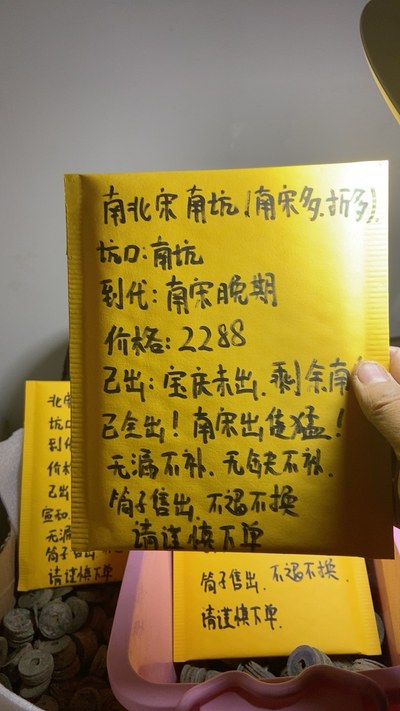 南北宋南坑(南宋多.折多)
坑口:南坑
到代:南宋晚期
价格:2288
已出:宝庆未出.剩余南
已全出!南宋出货猛!
无漏不补.无缺不补.
筒子售出.不退不换
请谨慎下单
北
坑
到
价
已出
宣和
无漏
筒子售出
请谨慎下单
筒子售出.不退不换.
请谨慎下单.